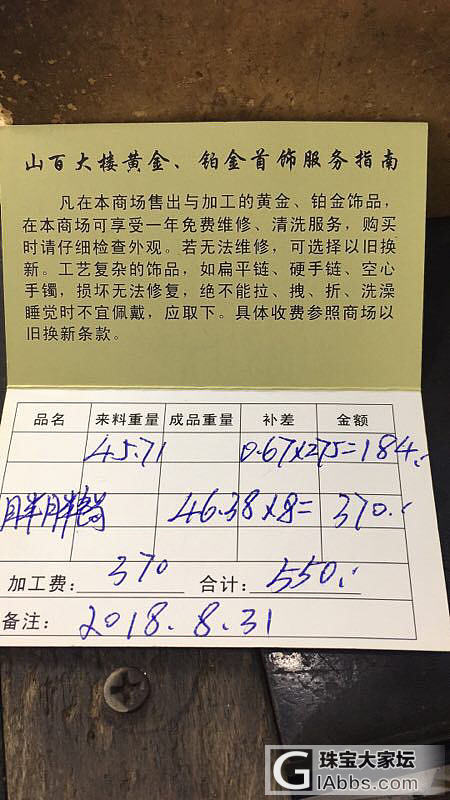 山百大楼黄金、铂金首饰服务指南
凡在本商场售出与加工的黄金、铂金饰品,
在本商场可享受一年免费维修、清洗服务,购买
时请仔细检查外观。若无法维修,可选择以旧换
新。工艺复杂的饰品,如扁平链、硬手链、空心
手镯,损坏无法修复,绝不能拉、拽、折、洗澡
睡觉时不宜佩戴,应取下。具体收费参照商场以
旧换新条款。
品名 来料重量 成品重量 补差 金额
45.71 0.67×275=184.
胖胖 46.38×8= 370.
加工费: 370 合计: 550.
备注: 2018.8.31
珠宝大家坛
IAbbs.com